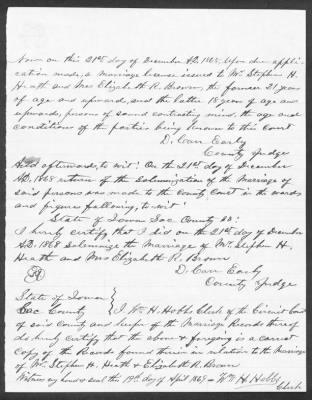 Now on this 21st day of December A.D. 1868, upon due appli-
cation made, a marriage license issued to Mr. Stephen H.
Heath and Mrs Elizabeth R. Brown, the former 21 years
of age and upward, and the latter 18 years of age and
upwards, persons of sound contracting mind, the age and
conditions of the parties being known to this Court
D. Carr Early
County Judge
And afterwards, to wit: On the 21st day of December
A.D. 1868 return of the Solemnization of the Marriage of
said persons was made to the County Court in the words
and figures following, to wit:
State of Iowa Sac County SS:
I hereby certify that I did on the 21st day of December
A.D. 1868 Solemnize the Marriage of Mr. Stephen H.
Heath and Mrs Elizabeth R. Brown
D. Carr Early
County Judge
State of Iowa
Sac County } I Wm H. Hobbs Clerk of the Circuit Court
of said County and keeper of the Marriage Records thereof
do hereby certify that the above & forgoing is a correct
Copy of the Records found therein in relation to the Marriage
of Mr. Stephen H. Heath & Elizabeth R. Brown
Witness my hand & seal this 19th day of April 1869 - Wm H. Hobbs
Clerk